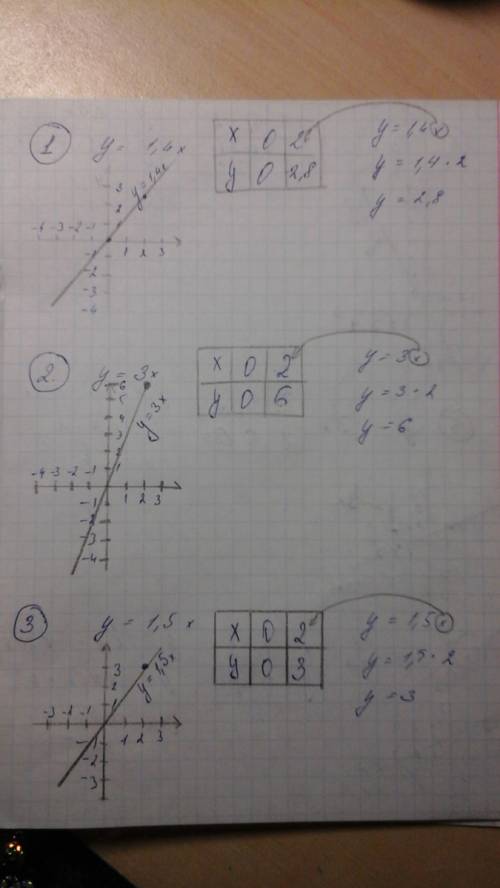 1 y = 1,4x
x 0 2
y 0 2,8
y = 1,4x
y = 1,4 · 2
y = 2,8
y = 1,4x
3
2
1
-4 -3 -2 -1 1 2 3
-1
-2
-3
-4
2. y = 3x
x 0 2
y 0 6
y = 3x
y = 3 · 2
y = 6
y = 3x
6
5
4
3
2
1
-4 -3 -2 -1 1 2 3
-1
-2
-3
-4
3 y = 1,5x
x 0 2
y 0 3
y = 1,5x
y = 1,5 · 2
y = 3
y = 1,5x
3
2
1
-3 -2 -1 1 2 3
-1
-2
-3